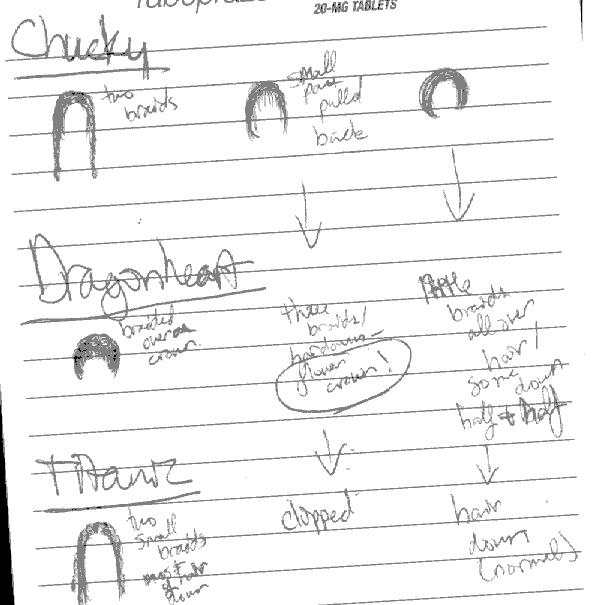 20-MG TABLETS
Chucky
two
braids
small
part
pulled
back
Dragonheart
braided
over
crown
three
braids/
flower
crown!
little
braids
all over
hair/
some
down
half + half
Titanic
two
small
braids
most
of hair
down
clipped
hair
down
(normal)